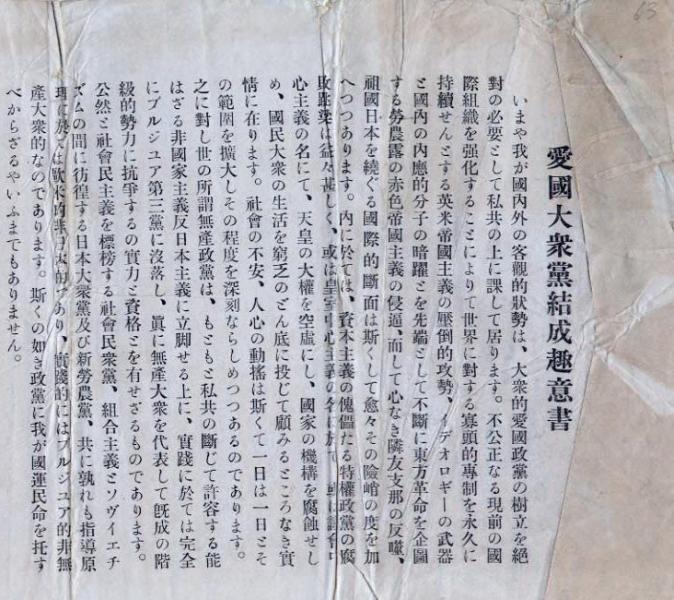 63
愛國大衆黨結成趣意書
いまや我が國内外の客觀的狀勢は、大衆的愛國政黨の樹立を絕
對の必要として私共の上に課して居ります。不公正なる現前の國
際組織を强化することによりて世界に對する寡頭的專制を永久に
持續せんとする英米帝國主義の壓倒的攻勢、イデオロギーの武器
と國内の内應的分子の暗躍とを先端として不斷に東方革命を企圖
する勞農露の赤色帝國主義の侵逼、而して心なき隣友支那の反噬、
祖國日本を繞ぐる國際的斷面は斯くして愈々その險峭の度を加
へつつあります。内に於ては、資本主義の傀儡たる特權政黨の腐
敗跳梁は益々甚しく、或は皇室中心主義の名に於て、或は議會中
心主義の名にて、天皇の大權を空虛にし、國家の機構を腐蝕せし
め、國民大衆の生活を窮乏のどん底に投じて顧みるところなき實
情に在ります。社會の不安、人心の動搖は斯くて一日は一日とそ
の範圍を擴大しその程度を深刻ならしめつつあるのであります。
之に對し世の所謂無產政黨は、もともと私共の斷じて許容する能
はざる非國家主義反日本主義に立脚せる上に、實踐に於ては完全
にブルジユア第三黨に沒落し、眞に無產大衆を代表して旣成の階
級的勢力に抗爭するの實力と資格とを有せざるものであります。
公然と社會民主義を標榜する社會民衆黨、組合主義とソヴイエチ
ズムの間に彷徨する日本大衆黨及び新勞農黨、共に孰れも指導原
理に於ては歐米的非日本的であり、實踐的にはブルジユア的非無
產大衆的なのであります。斯くの如き政黨に我が國運民命を托す
べからざるやいふまでもありません。